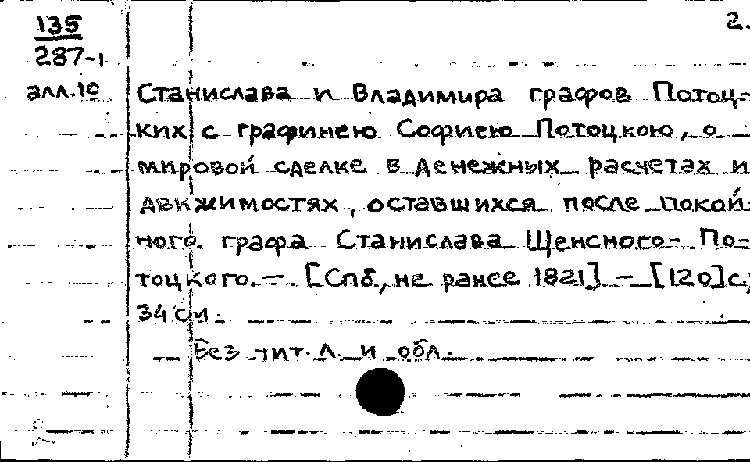 135 2.
287-1
алл.1с Станислава и Владимира графов Потоц-
ких с графинею Софиею Потоцкою, о
мировой сделке в денежных расчетах и
движимостях, оставшихся после покой-
ного графа Станислава Щенсного- По-
тоцкого. — [Спб, не ранее 1821] — [120]с,
34 см.
Без тит. л. и обл.